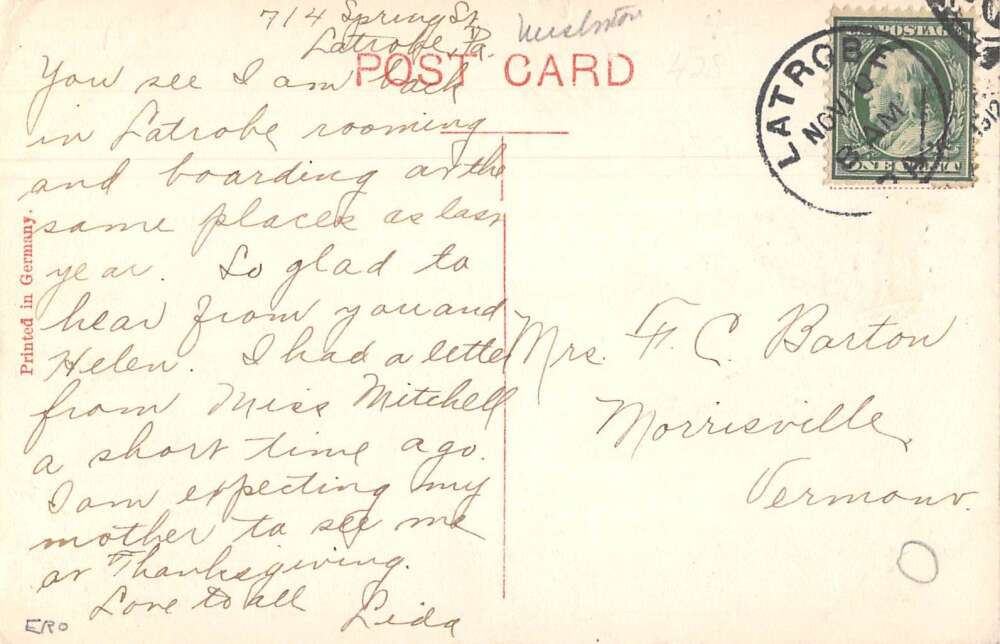 714 Spring St
Latrobe, Pa.
POST CARD
You see I am back
in Latrobe rooming
and boarding at the
same places as last
year. So glad to
hear from you and
Helen. I had a letter
from Miss Mitchell
a short time ago.
I am expecting my
mother to see me
at Thanksgiving.
Love to all
Lida
ERO
Printed in Germany.
425
LATROBE
NOV
AM
1912
POSTAGE
ONE CENT
Mrs. F. C. Barton
Morrisville,
Vermont.